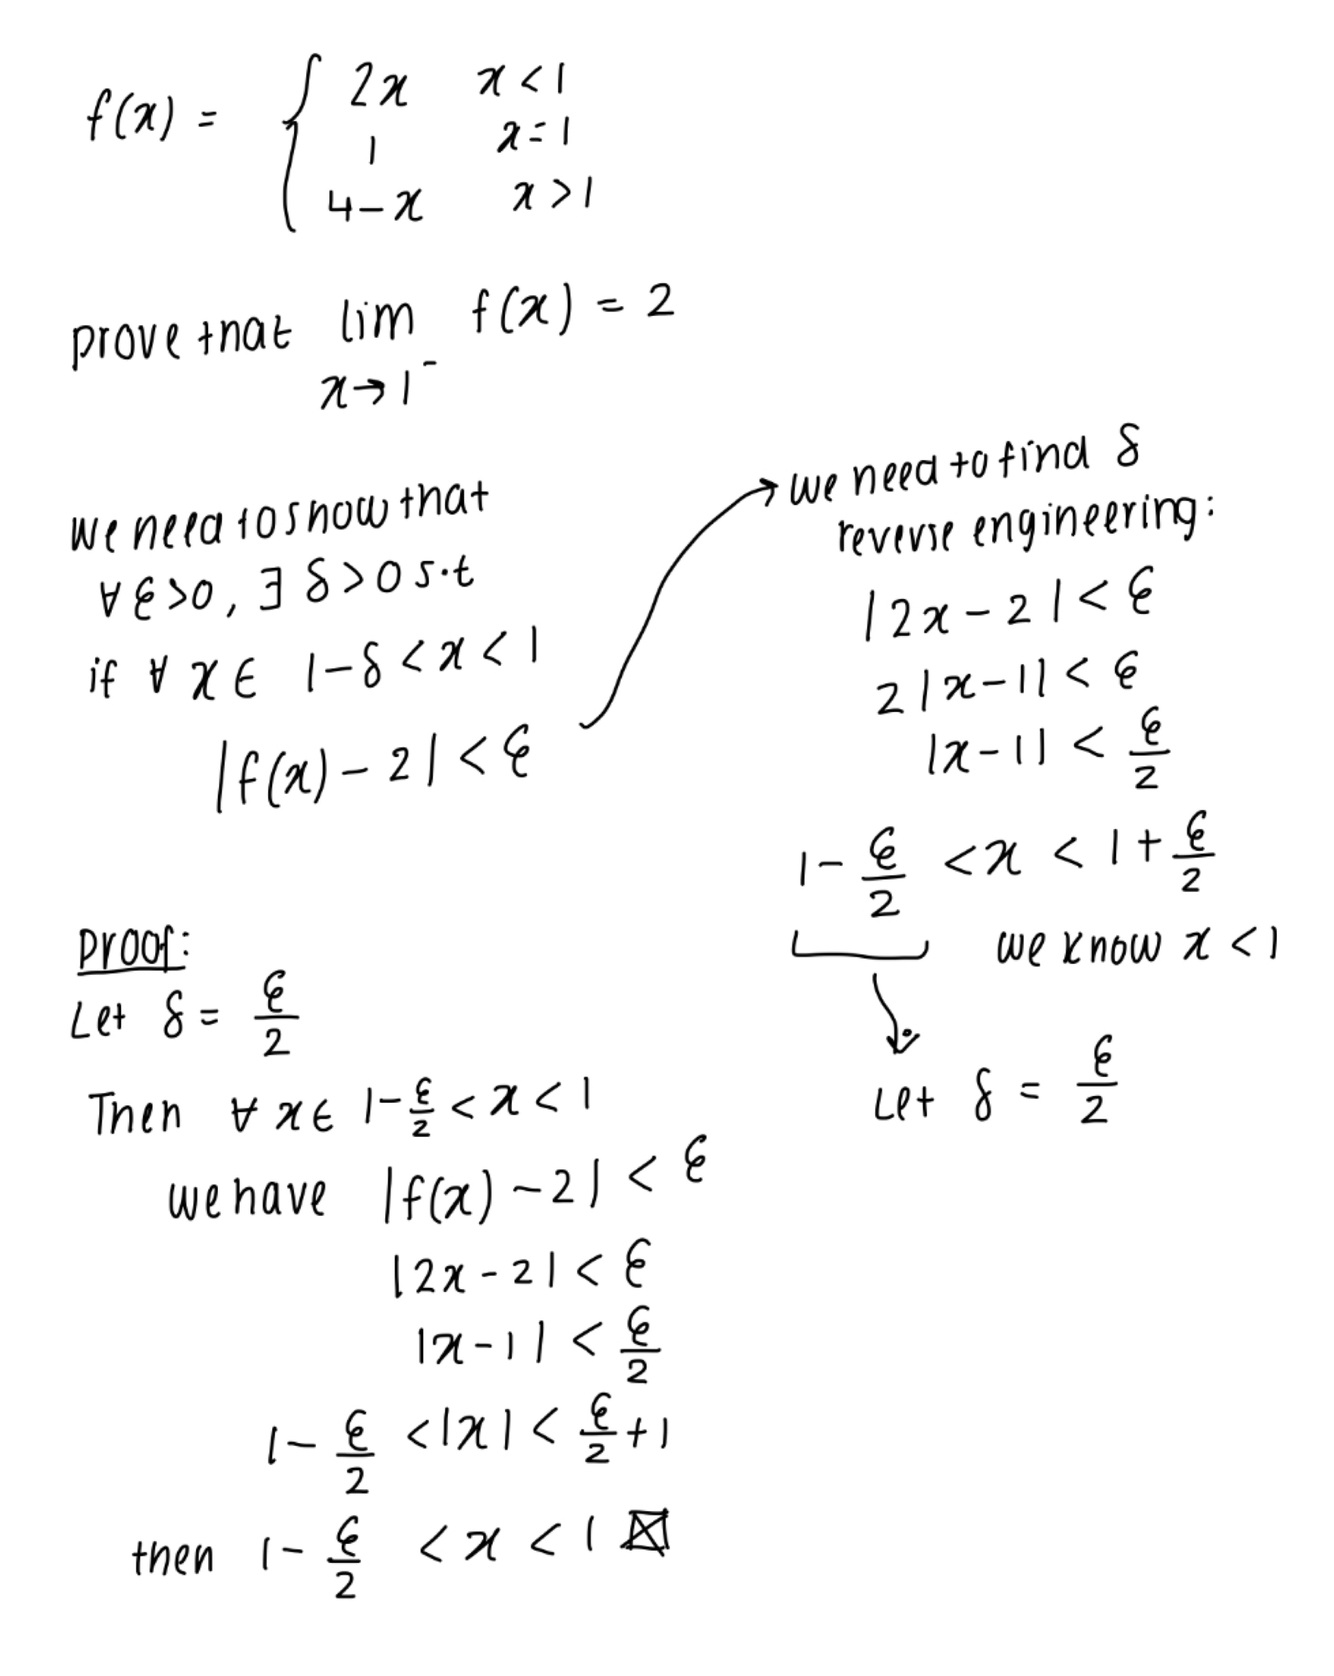 f(x) = { 2x x < 1
1 x = 1
4 - x x > 1
prove that lim f(x) = 2
x → 1⁻
we need to show that
∀ ε > 0, ∃ δ > 0 s.t
if ∀ x ∈ 1 - δ < x < 1
|f(x) - 2| < ε
we need to find δ
reverse engineering:
|2x - 2| < ε
2|x - 1| < ε
|x - 1| < ε/2
1 - ε/2 < x < 1 + ε/2
we know x < 1
Let δ = ε/2
proof:
Let δ = ε/2
Then ∀ x ∈ 1 - ε/2 < x < 1
we have |f(x) - 2| < ε
|2x - 2| < ε
|x - 1| < ε/2
1 - ε/2 < |x| < ε/2 + 1
then 1 - ε/2 < x < 1 ☒